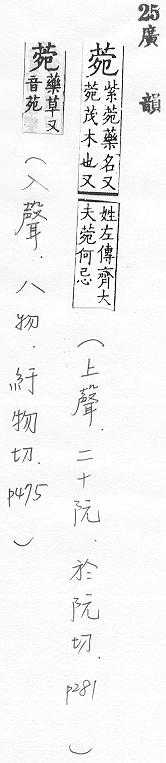 25廣韻
菀紫菀藥名又菀茂木也又姓左傳齊大夫菀何忌(上聲．二十阮．於阮切．p281)
菀藥草又音苑(入聲．八物．紆物切．p475)